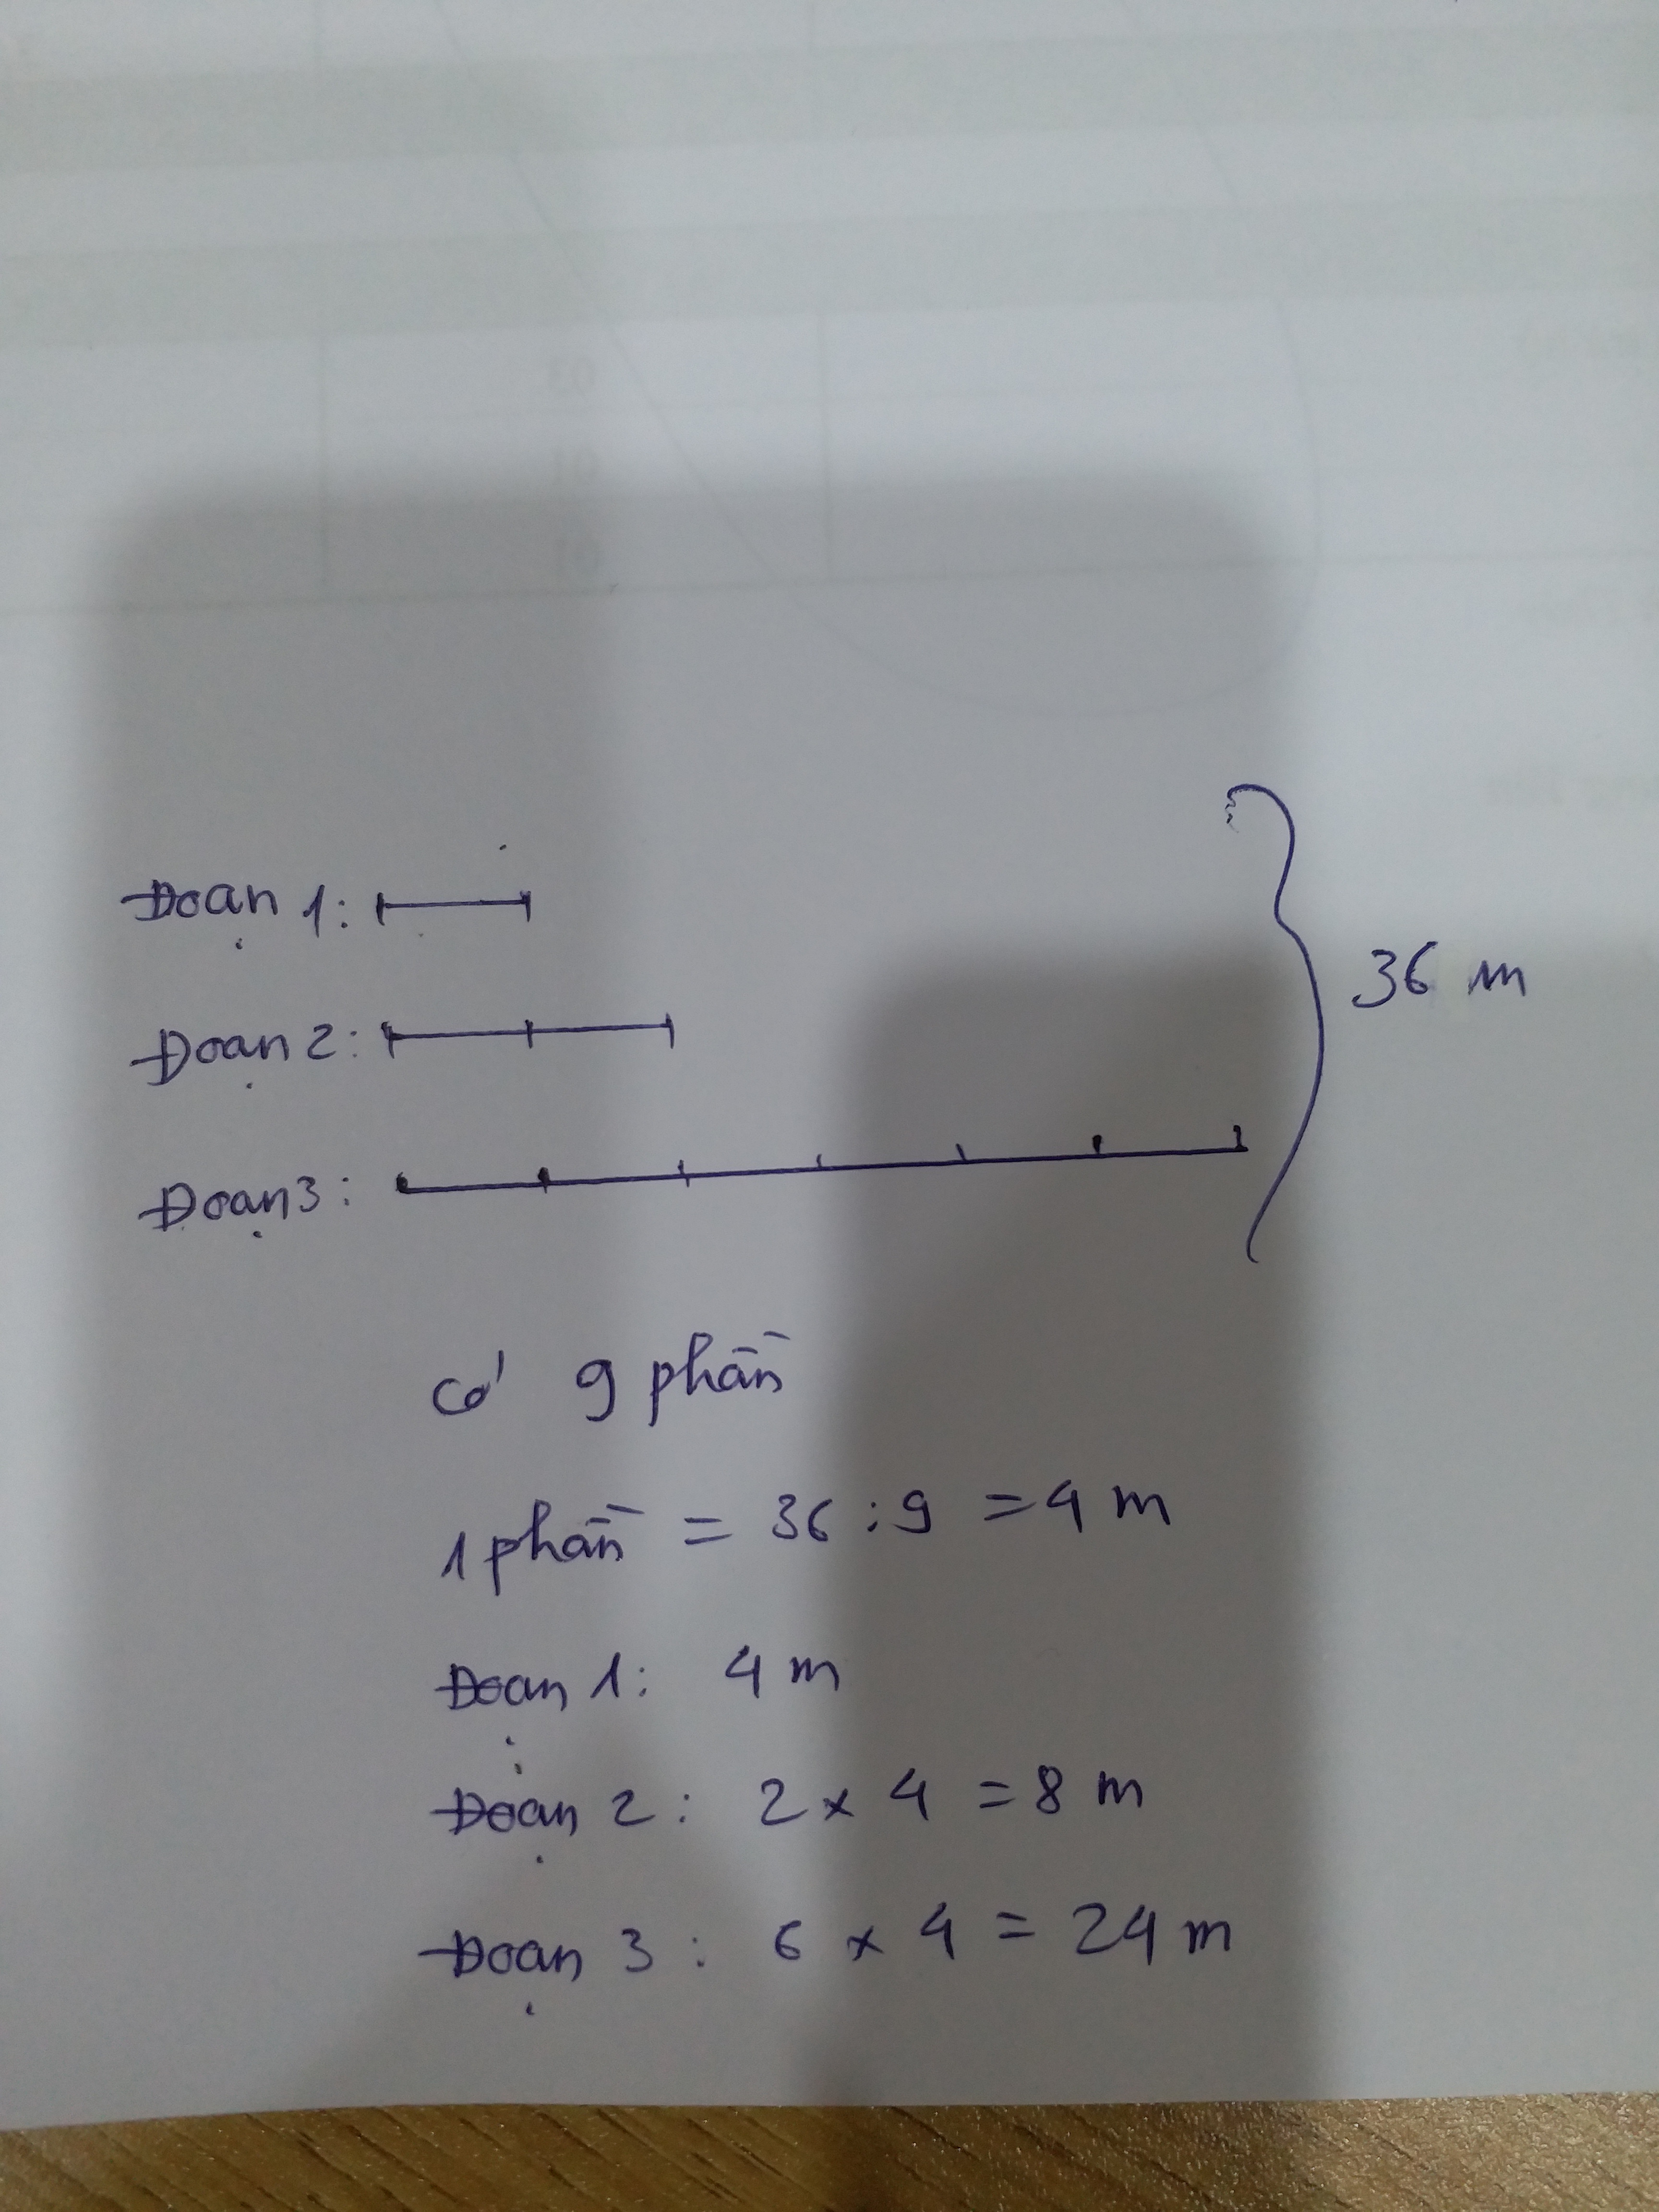 Đoạn 1:
36 m
Đoạn 2:
Đoạn 3:
có 9 phần
1 phần = 36 : 9 = 4 m
Đoạn 1: 4 m
Đoạn 2 : 2 x 4 = 8 m
Đoạn 3 : 6 x 4 = 24 m
03
01
01